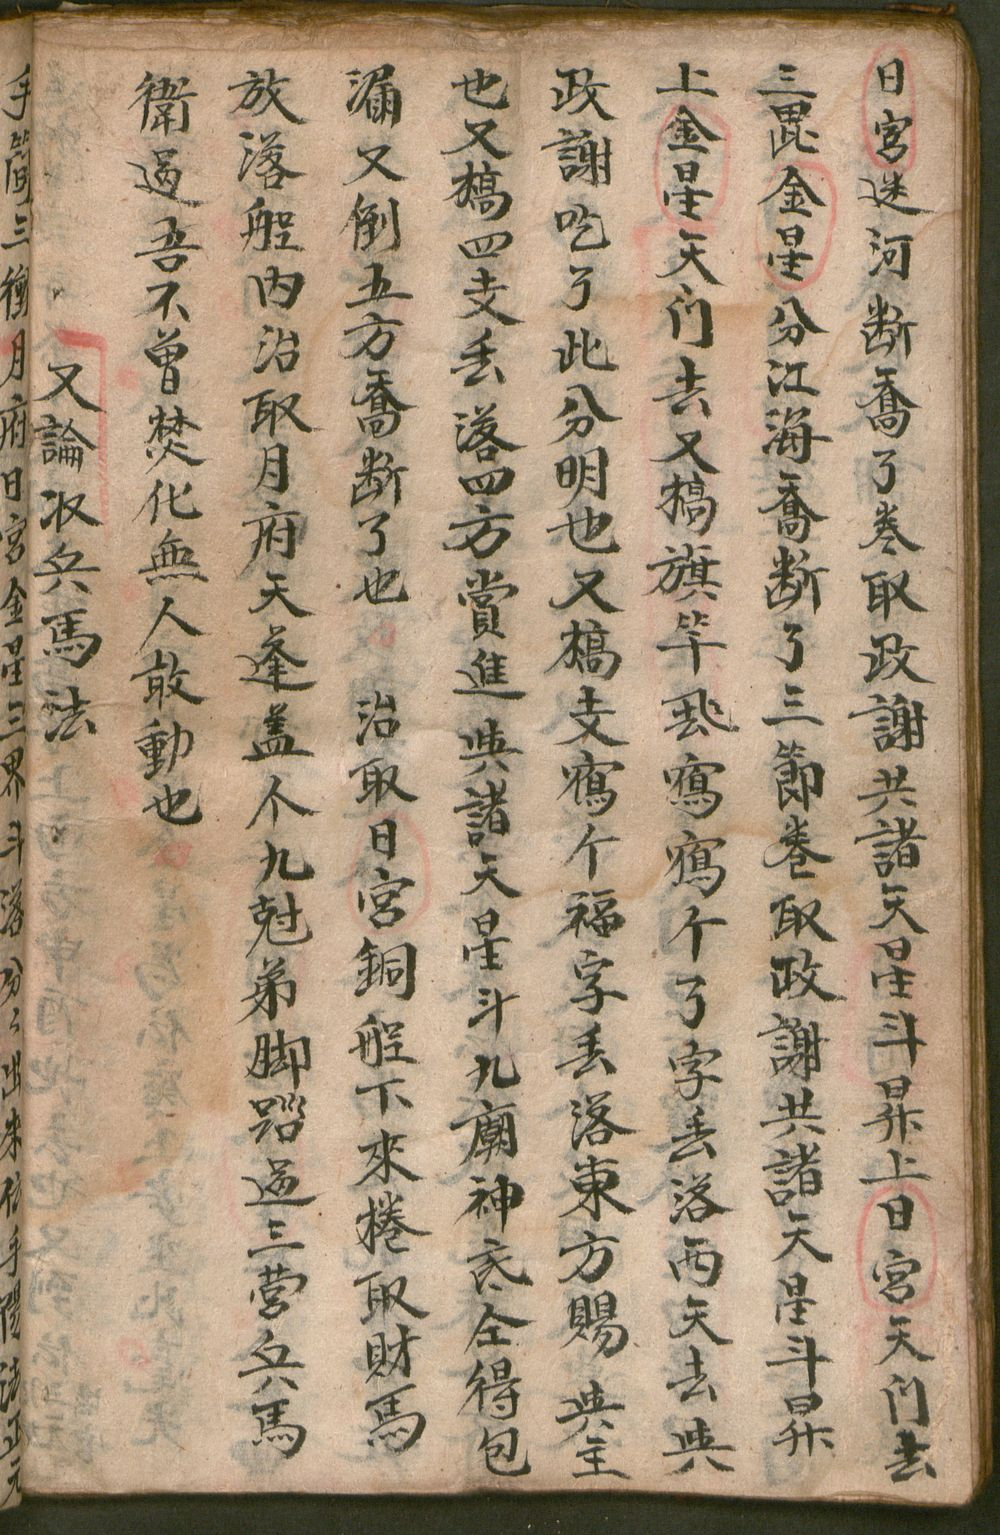 日宮迷河断喬了巻取政謝共諸天星斗昇上日宮天门去
三毘金星分江海喬断了三節巻取政謝共諸天星斗昇
上金星天门去又槁旗竿虱寫寫个了字丢落西天去典
政謝吃了此分明也又槁支寫个福字丢落東方賜典主
也又槁四支丢落四方賞進典諸天星斗九廟神底全得包
漏又倒五方喬断了也 治取日宮銅船下來捲取財馬
放落船内治取月府天逢盖个九尅弟脚踏過三营兵馬
衛過吾不曾焚化無人敢動也
又論收兵馬法
手簡三衝月府日宮金星三界斗落分出來信手陽法正元